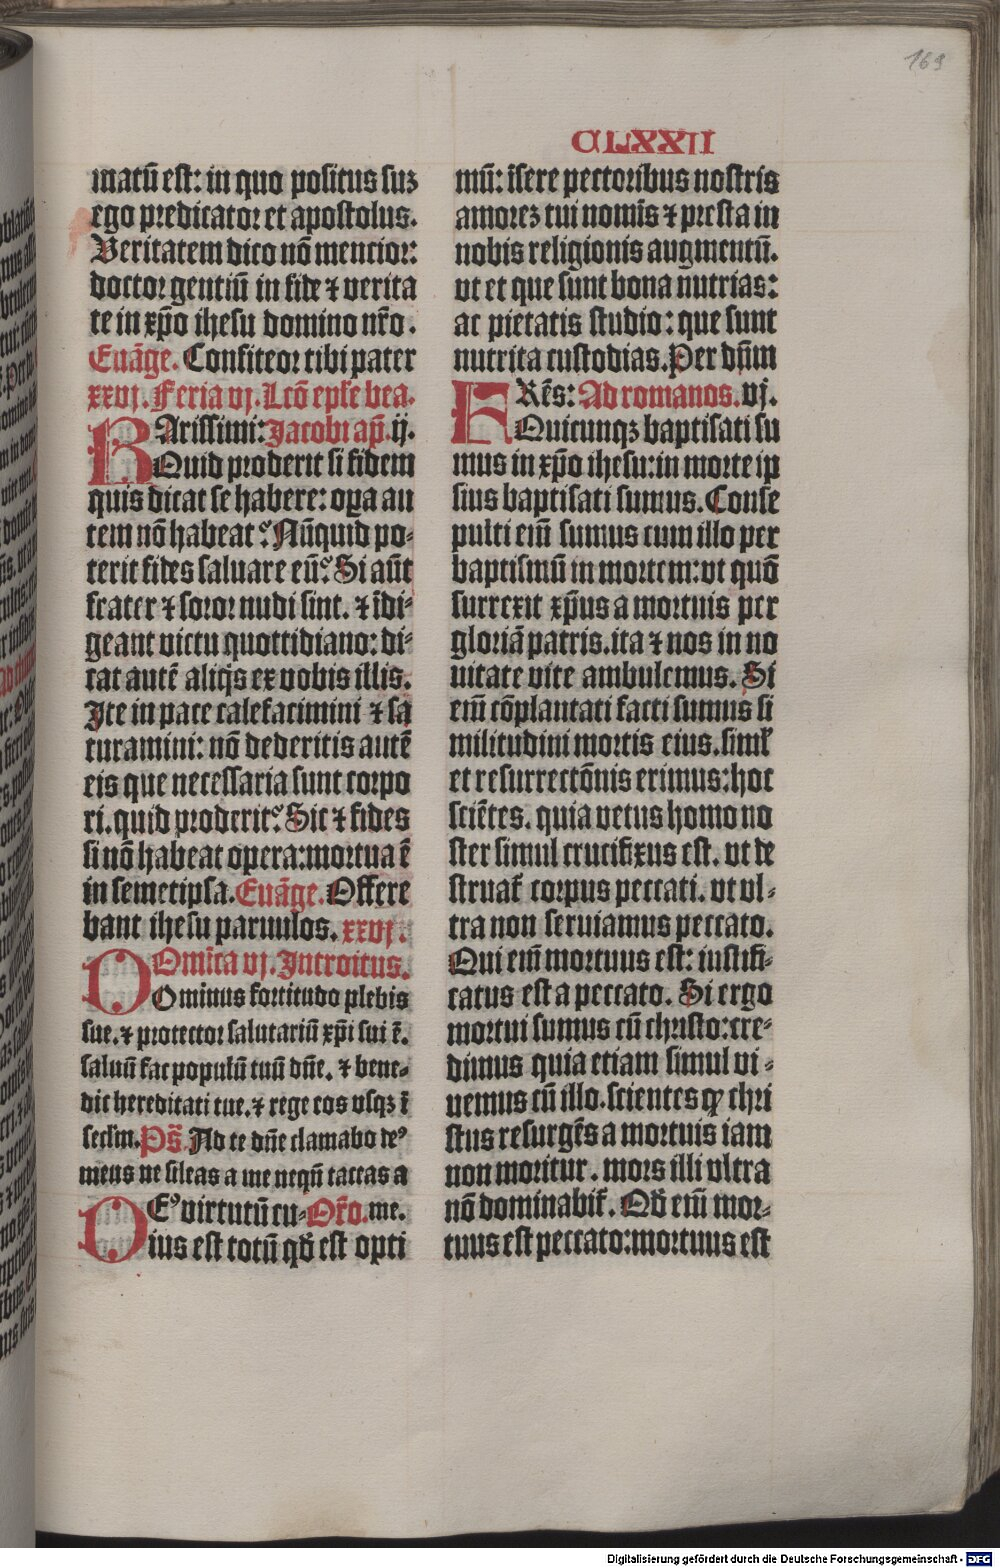 169
CLXXII
matū est: in quo positus suꝫ
ego predicator et apostolus.
Veritatem dico nō mencior:
doctor gentiū in fide ⁊ verita
te in xp̄o ihesu domino nr̄o.
Euāge. Confiteor tibi pater
xxvj. Feria vj. Lcō epl̄e bea.
KArissimi: Jacobi ap̄. ij.
Quid proderit si fidem
quis dicat se habere: oꝑa au
tem nō habeat? Nūquid po-
terit fides saluare eū? Si aūt
frater ⁊ soror nudi sint. ⁊ īdi-
geant victu quottidiano: di-
cat autē aliq̄s ex vobis illis.
Ite in pace calefacimini ⁊ sa
turamini: nō dederitis autē
eis que necessaria sunt corpo
ri. quid proderit? Sic ⁊ fides
si nō habeat opera: mortua ē
in semetipsa. Euāge. Offere
bant ihesu paruulos. xxvj.
DOmīca vj. Introitus.
Ominus fortitudo plebis
sue. ⁊ protector salutariū xp̄i sui ē.
saluū fac populū tuū dn̄e. ⁊ bene-
dic hereditati tue. ⁊ rege eos vsqꝫ ī
secl̄m. Ps̄. Ad te dn̄e clamabo deꝰ
meus ne sileas a me neqn̄ taceas a
DEꝰ virtutū cu- Or̄o. me.
ius est totū qd̄ est opti
mū: īsere pectoribus nostris
amorēꝫ tui nomīs ⁊ presta in
nobis religionis augmentū.
vt et que sunt bona nutrias:
ac pietatis studio: que sunt
nutrita custodias. Per dn̄m
FRēs: Ad romanos. vj.
Quicunqꝫ baptisati su
mus in xp̄o ihesu: in morte ip
sius baptisati sumus. Conse
pulti eīm sumus cum illo per
baptismū in mortem: vt quō
surrexit xp̄us a mortuis per
gloriā patris. ita ⁊ nos in no
uitate vite ambulemus. Si
eīm cōplantati facti sumus si
militudini mortis eius. siml̄
et resurrectōnis erimus: hoc
sciētes. quia vetus homo no
ster simul crucifixus est. vt de
struat᷑ corpus peccati. vt vl-
tra non seruiamus peccato.
Qui eīm mortuus est: iustifi-
catus est a peccato. Si ergo
mortui sumus cū christo: cre-
dimus quia etiam simul vi-
uemus cū illo. scientes ꝙ chri
stus resurgēs a mortuis iam
non moritur. mors illi vltra
nō dominabit᷑. Qd̄ eīm mor-
tuus est peccato: mortuus est
Digitalisierung gefördert durch die Deutsche Forschungsgemeinschaft - DFG